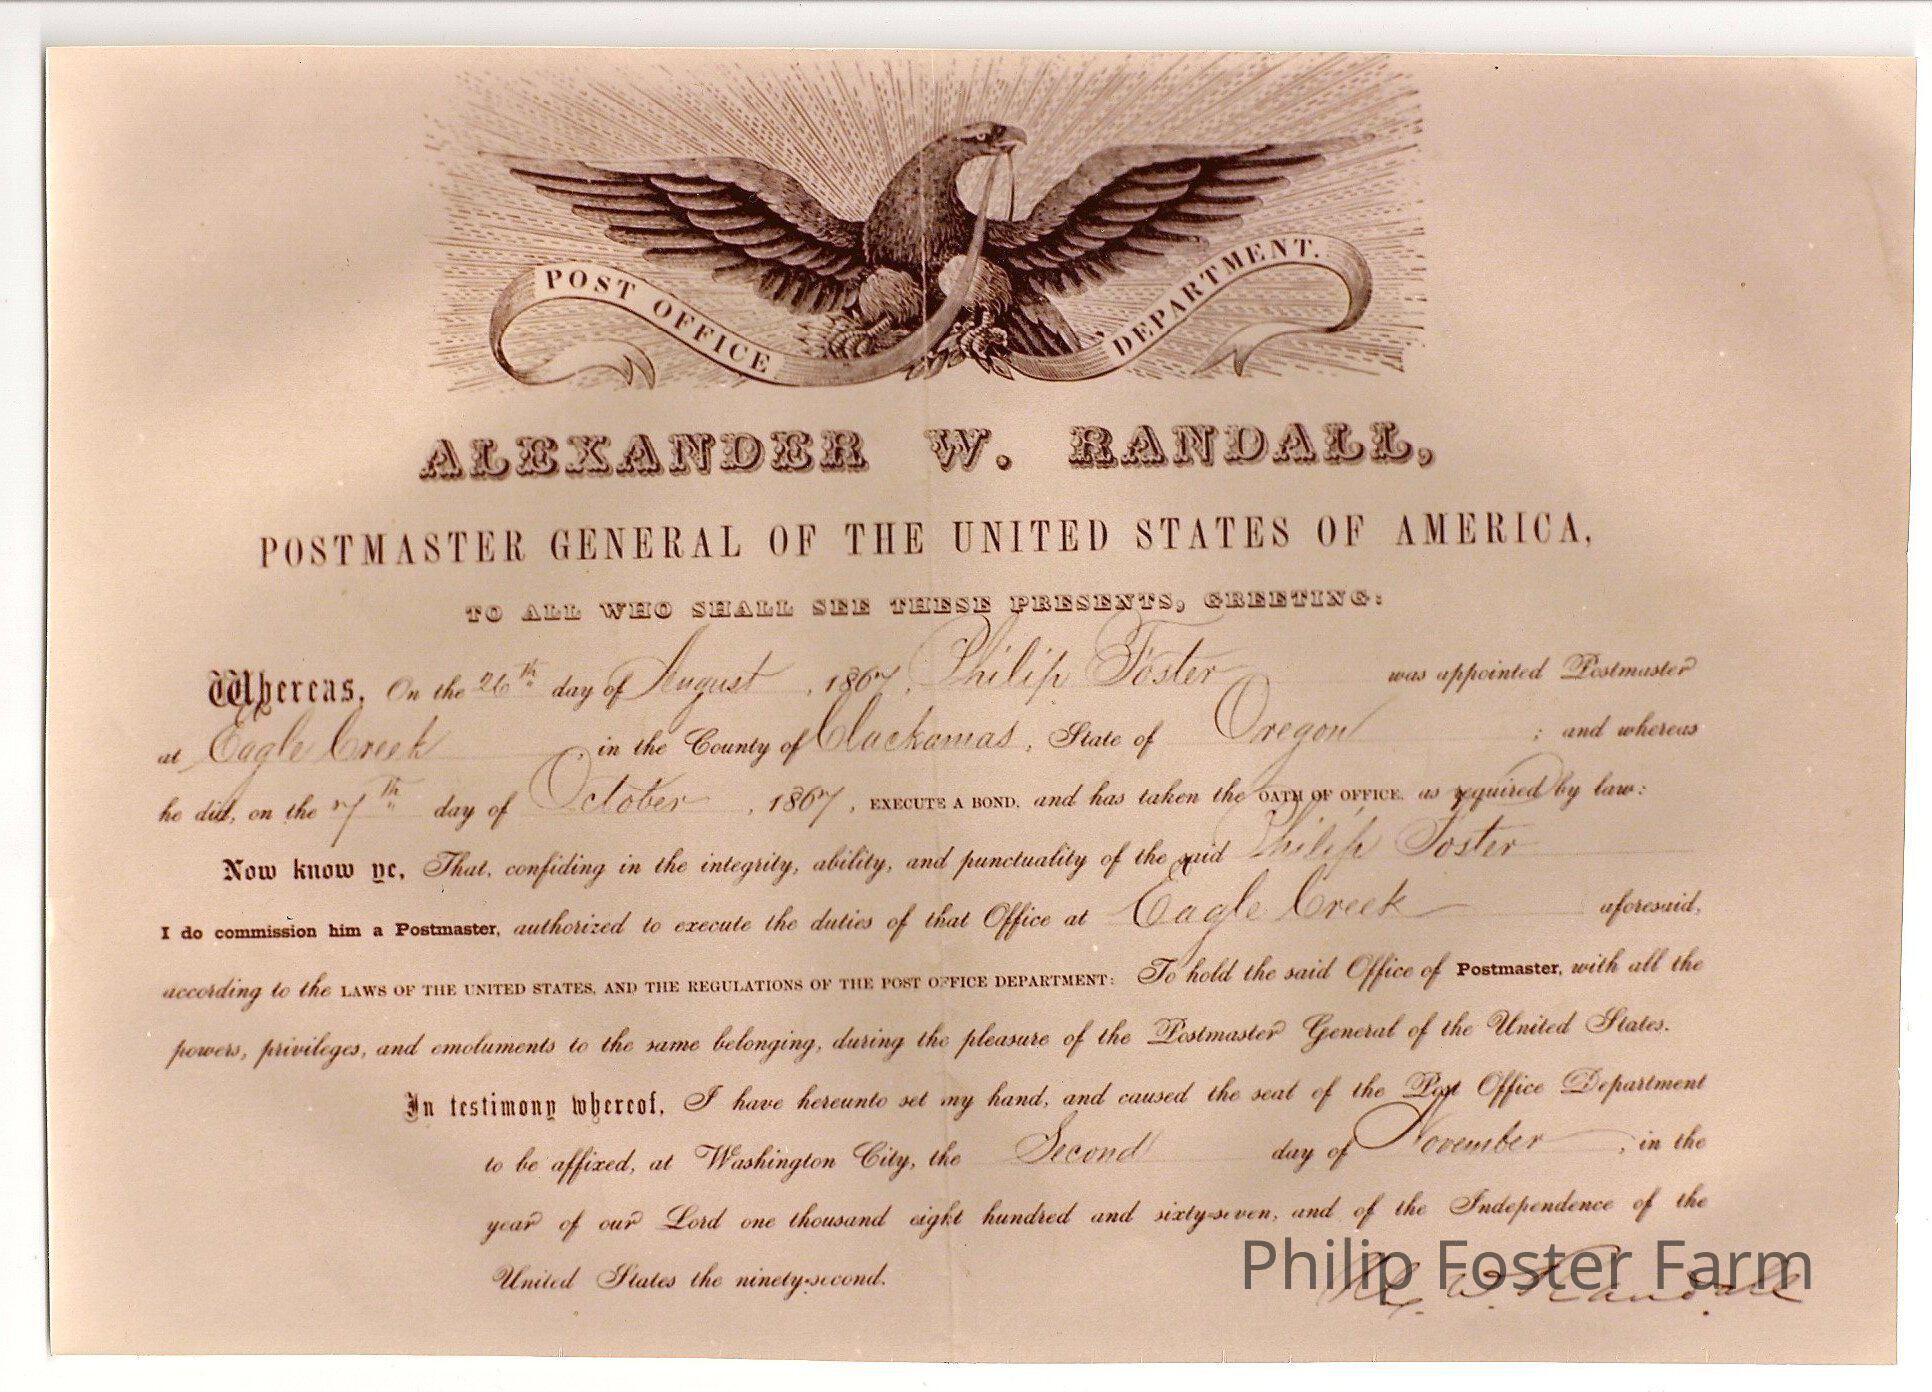 POST OFFICE DEPARTMENT.
ALEXANDER W. RANDALL,
POSTMASTER GENERAL OF THE UNITED STATES OF AMERICA,
TO ALL WHO SHALL SEE THESE PRESENTS, GREETING:
Whereas, On the 26th day of August, 1867, Philip Foster was appointed Postmaster
at Eagle Creek in the County of Clackamas, State of Oregon; and whereas
he did, on the 7th day of October, 1867, EXECUTE A BOND, and has taken the OATH OF OFFICE, as required by law:
Now know ye, That, confiding in the integrity, ability, and punctuality of the said Philip Foster
I do commission him a Postmaster, authorized to execute the duties of that Office at Eagle Creek aforesaid,
according to the LAWS OF THE UNITED STATES, AND THE REGULATIONS OF THE POST OFFICE DEPARTMENT: To hold the said Office of Postmaster, with all the
powers, privileges, and emoluments to the same belonging, during the pleasure of the Postmaster General of the United States.
In testimony whereof, I have hereunto set my hand, and caused the seal of the Post Office Department
to be affixed, at Washington City, the Second day of November, in the
year of our Lord one thousand eight hundred and sixty-seven, and of the Independence of the
United States the ninety-second.
Philip Foster Farm
Alex. W. Randall